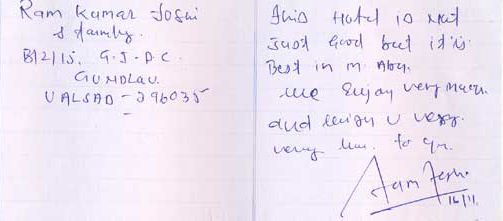 Ram Kumar Joshi
& family.
B/2/15, G.I.D.C.
GUNDLAV.
VALSAD - 396035
This Hotel is Not
Just Good but it is
Best in m. Abu.
we Enjoy very much.
and u very.
very to
Ram Joshi
16/11